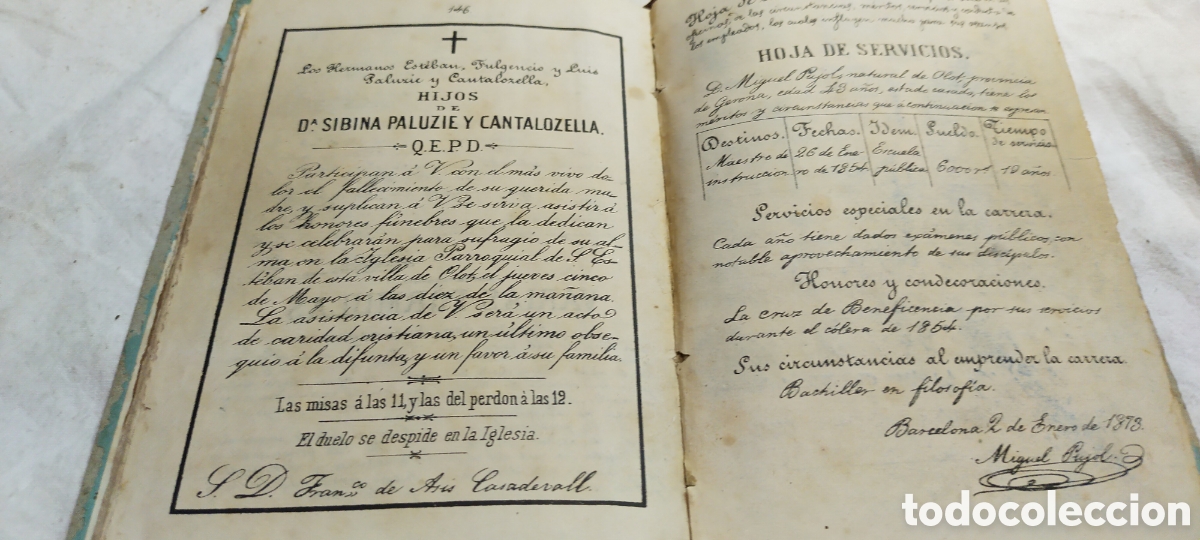 146
Los Hermanos Estéban, Fulgencio y Luis
Paluzie y Cantalozella,
HIJOS
DE
Dª SIBINA PALUZIE Y CANTALOZELLA.
Q.E.P.D.
Participan á V. con el más vivo do-
lor el fallecimiento de su querida ma-
dre, y suplican á V. se sirva asistir á
los honores fúnebres que la dedican
y si celebrarán para sufragio de su al-
ma en la Iglesia Parroquial de S. Es-
téban de esta villa de Olot, el jueves cinco
de Mayo á las diez de la mañana.
La asistencia de V. será un acto
de caridad cristiana, un último obse-
quio á la difunta, y un favor á su familia.
Las misas á las 11, y las del perdon á las 12.
El duelo se despide en la Iglesia.
S. D. Franco de Asis Casadevall.
Hoja de
á las circunstancias, méritos, servicios y
los empleados, los cuales
HOJA DE SERVICIOS.
D. Miguel Pujol, natural de Olot, provincia
de Gerona, edad 43 años, estado casado, tiene los
méritos y circunstancias que á continuacion se expresan
Destinos. Fechas. Idem. Sueldo. Tiempo de servicio
Maestro de instruccion 26 de Enero de 1854 Escuela pública 6000 rs 19 años.
Servicios especiales en la carrera.
Cada año tiene dados exámenes públicos, con
notable aprovechamiento de sus discípulos.
Honores y condecoraciones.
La cruz de Beneficencia por sus servicios
durante el cólera de 1854.
Sus circunstancias al emprender la carrera.
Bachiller en filosofía.
Barcelona 2 de Enero de 1873.
Miguel Pujol
todocoleccion